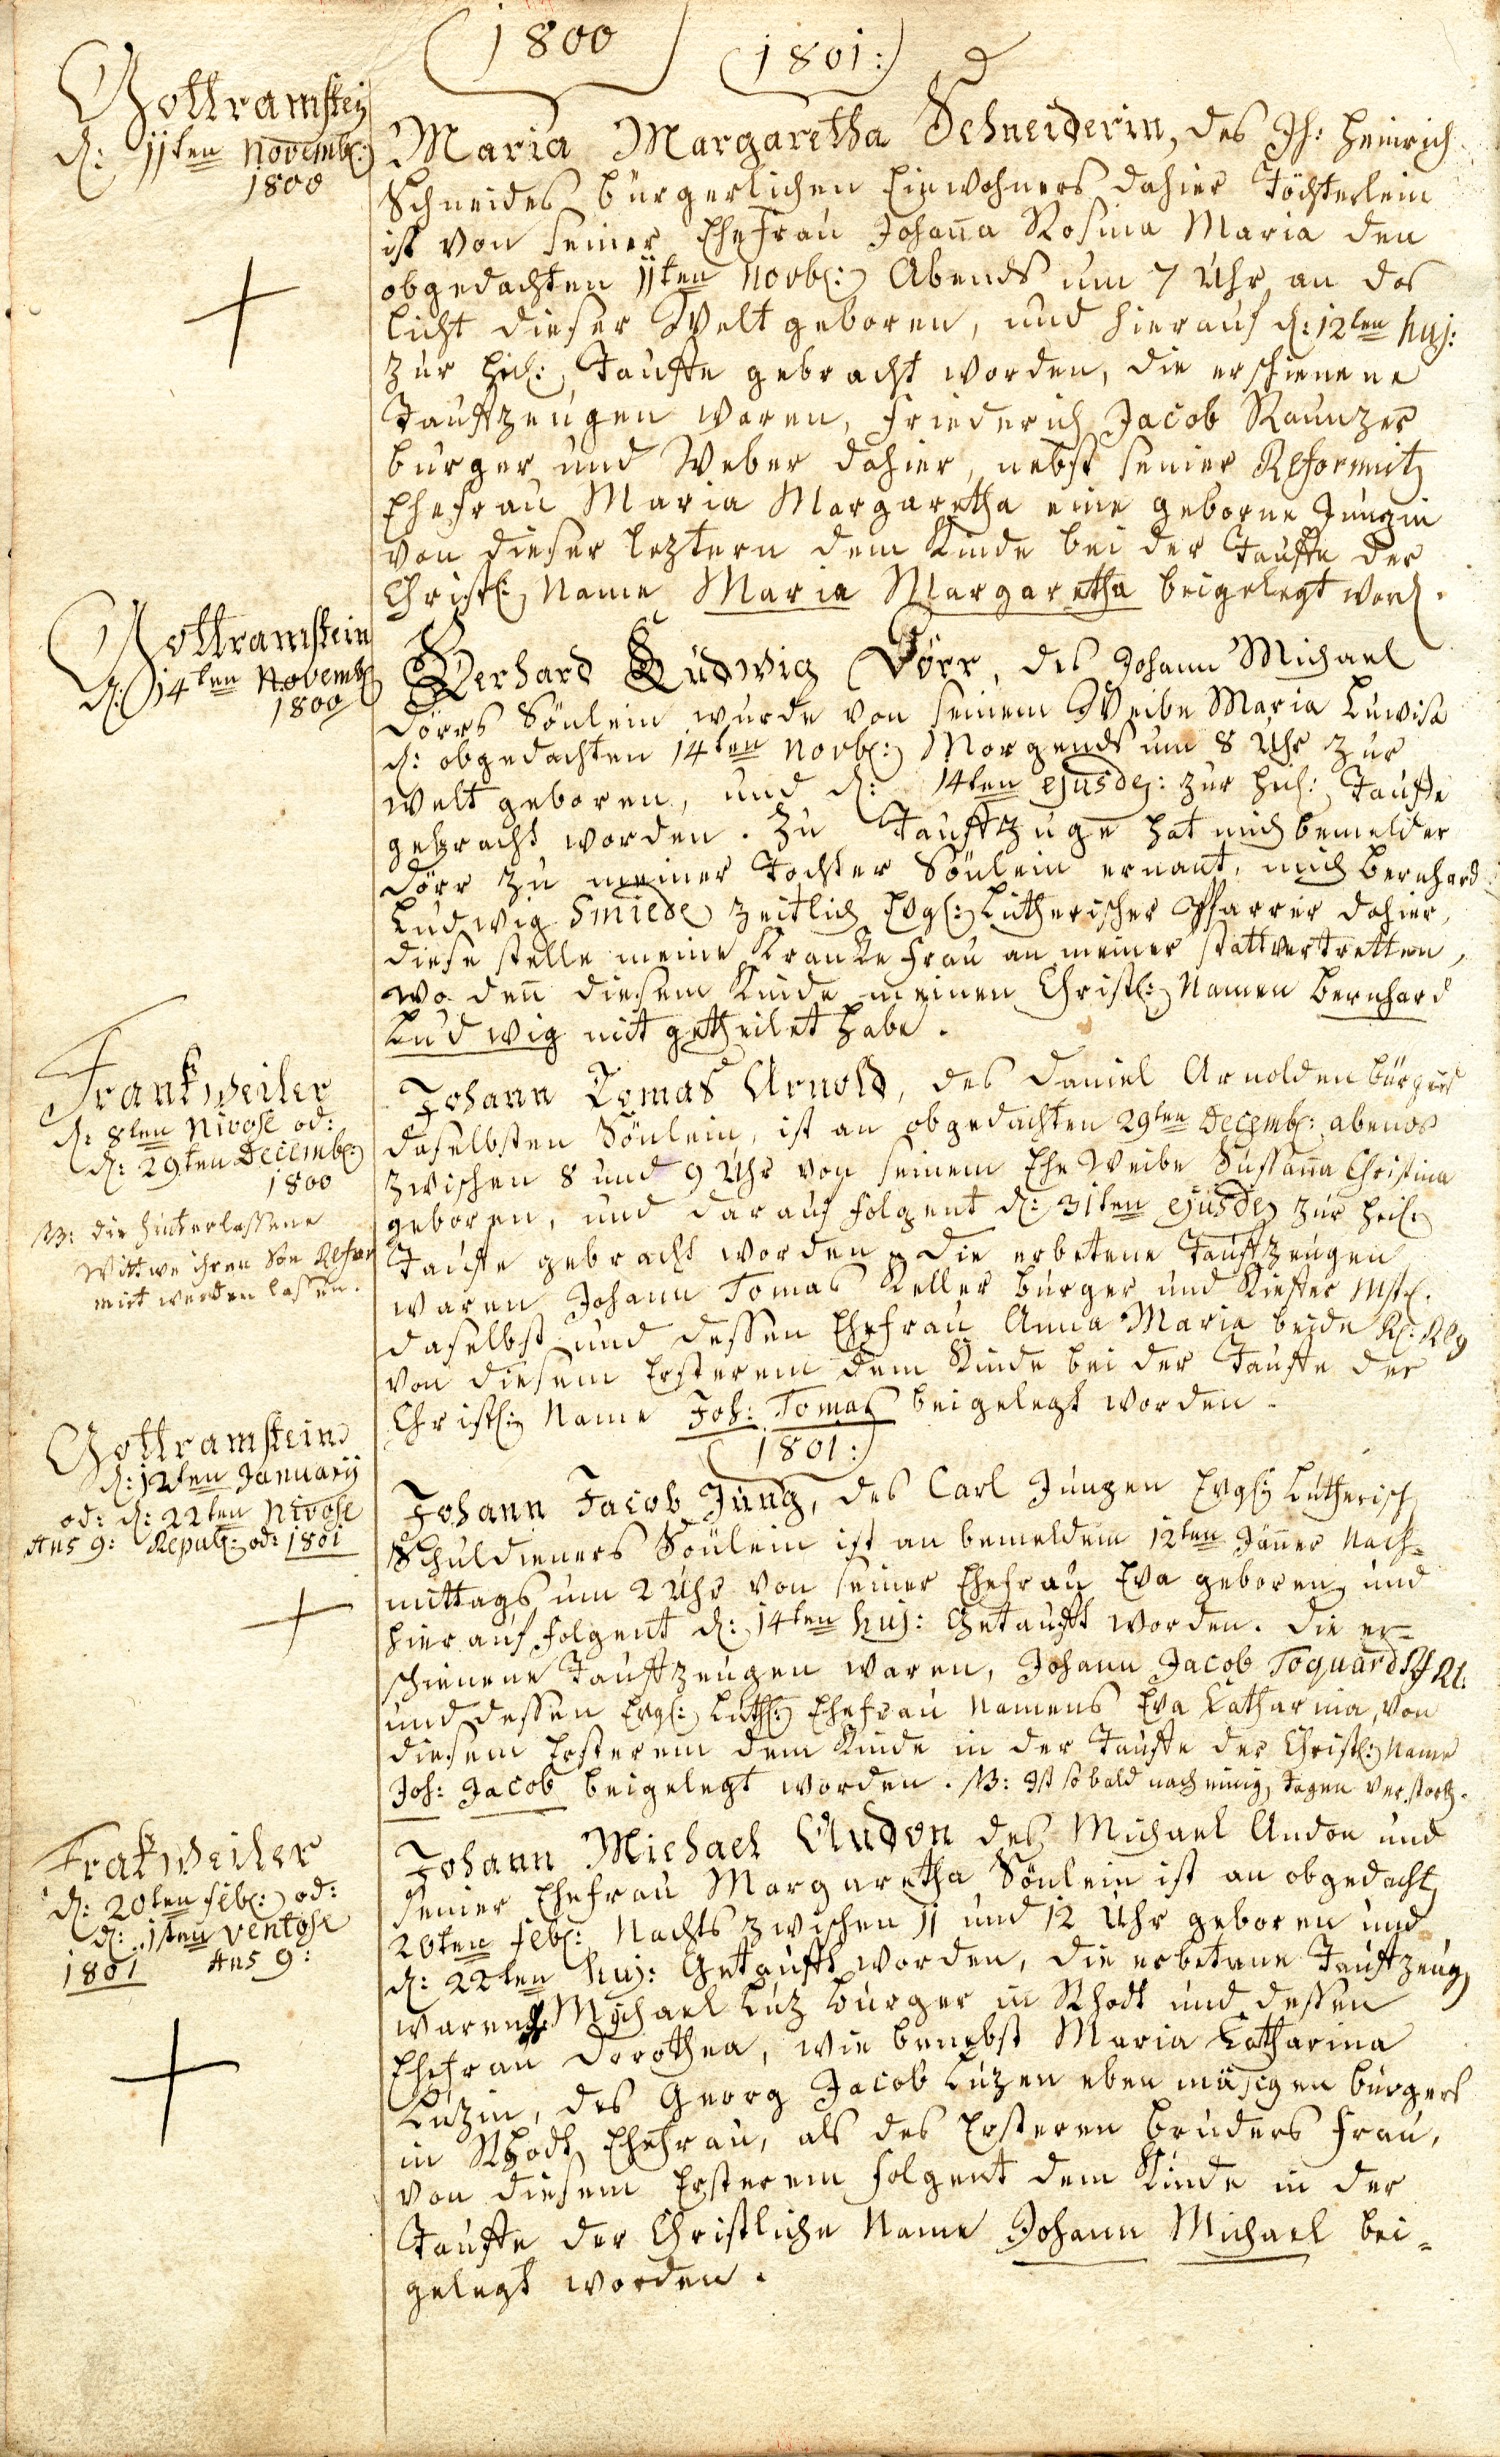 1800
1801:
Gottramstein
d: 11ten Novemb:
1800
Maria Margaretha Schneiderin, des Jh: Heinrich
Schneiders bürgerlichen Einwohners dahier Töchterlein
ist von seiner Ehefrau Johanna Rosina Maria den
obgedachten 11ten Novb: Abends um 7 Uhr an das
Licht dieser Welt geboren, und hierauf d: 12ten huj:
zur heil: Tauffe gebracht worden, die erschienene
Tauffzeugen waren, Friederich Jacob Raunzer
burger und Weber dahier, nebst seiner Reformirt
Ehefrau Maria Margaretha eine geborne Jungin
von dieser leztern dem Kinde bei der Tauffe der
Christl: Name Maria Margaretha beigelegt word.
Gottramstein
d: 14ten Novemb
1800
Berhard Ludwig Dörr, des Johann Michael
Dörrs Sönlein wurde von seinem Weibe Maria Luwisa
d: obgedachten 14ten Novb: Morgends um 8 Uhr zur
Welt geboren, und d: 14ten ejusdej: zur heil: Tauffe
gebracht worden. Zu Tauffzuge hat mich bemelder
Dörr zu meiner Tochter Sönlein ernant, mich Bernhard
Ludwig Smiede zeitlich Evgl: Lutherischer Pfarrer dahier,
diese stelle meine Krancke Frau an meiner statt vertretten,
wo denn diesem Kinde meinen Christl: Namen Bernhard
Ludwig mit getheilet habe.
Frankweiler
d: 8ten Nivose od:
d: 29ten Decemb:
1800
NB: die hinterlassene
Wittwe ihren Son Refor
mirt werden lassen.
Johann Tomas Arnold, des Daniel Arnolden bürgers
daselbsten Sönlein, ist an obgedachten 29ten Decemb: abends
zwischen 8 und 9 Uhr von seinem Ehe Weibe Sussanna Christina
geboren, und darauf folgent d: 31ten ejusdej zur heil:
Tauffe gebracht worden die erbetene Tauffzeugen
waren Johann Tomas Keller burger und Kieffer Mstr.
daselbst und dessen Ehefrau Anna Maria beide Rf: Rlg
von diesem Ersterem dem Kinde bei der Tauffe der
Christl: Name Joh: Tomas beigelegt worden.
1801:
Gottramstein
d: 12ten January
od: d: 22ten Nivose
Ans 9: Republ: od: 1801
Johann Jacob Jung, des Carl Jungen Evgl: Lutherisch
Schuldieners Sönlein ist an bemeldem 12ten Jäner Nach=
mittags um 2 Uhr von seiner Ehefrau Eva geboren, und
hierauf folgent d: 14ten huj: Getaufft worden. die er=
schienene Tauffzeugen waren, Johann Jacob Toquard Rf Rl:
und dessen Evgl: Luth: Ehefrau Namens Eva Catharina, von
diesem Ersterem dem Kinde in der Tauffe der Christl: Name
Joh: Jacob beigelegt worden. NB: Ist so bald nach einig Tagen verstorb.
Frakweiler
d: 20ten Feb: od:
d: 1ten Ventose
1801 Ans 9:
Johann Michael Audon des Michael Audon und
seiner Ehefrau Margaretha Sönlein ist an obgedacht
20ten Feb: Nachts zwischen 11 und 12 Uhr geboren und
d: 22ten huj: Getaufft worden, die erbetene Tauffzeug
waren Michael Luz burger in Rhodt und dessen
Ehefrau Dorothea, wie benebst Maria Catharina
Luzin, des Georg Jacob Luzen eben mäsigen burgers
in Rhodt Ehefrau, als des Ersteren bruders Frau,
von diesem Ersterem folgent dem Kinde in der
Tauffe der Christliche Name Johann Michael bei=
gelegt worden.